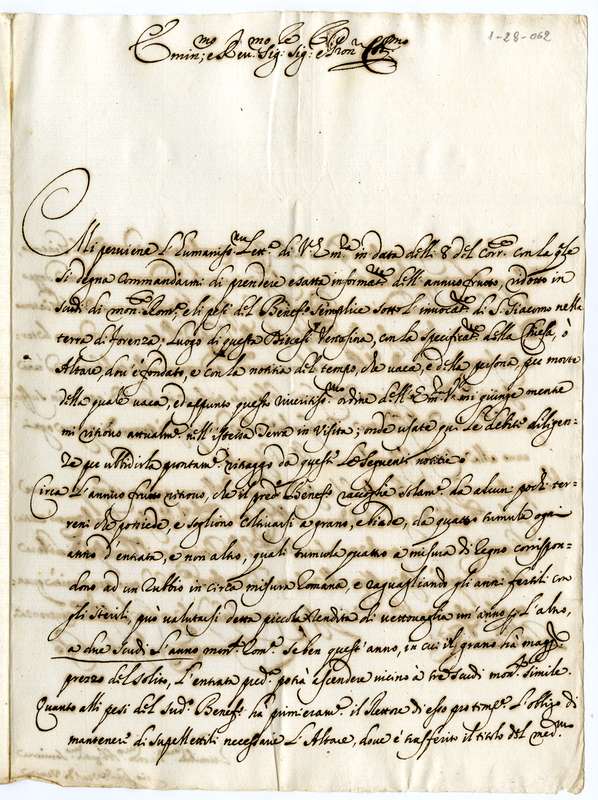 1-28-062
Emin:mo e Rev:mo Sig: Sig: e Pron Col:mo
Mi perviene l'Umaniss:ma Lett:a di V: Em:za in data delli 8 del Corr: con la q'le
si degna commandarmi di prendere esatta informat:ne dell'annuo frutto, ridotto in
scudi di mon: Rom: e li pesi del Benef:o semplice sotto l'invocat:ne di S. Giacomo nella
terra di Forenza; luogo di questa Diocesi Venosina, con la specificat:ne della Chiesa, ò
Altare, dov'è fondato, e con la notitia del tempo, che vaca, e della persona, per morte
della quale vaca, ed appunto questo riveritiss:mo ordine dell'Em:za V:ra mi giunge mentre
mi ritrovo attualm:e nell'istessa Terra in Visita; onde usate qui le debite diligen-
ze per ubbidirla prontam:e ritraggo da questi le seguenti notitie
Circa l'annuo frutto ritrovo, che il pred:o Benef:o raccoglie solam:e da alcuni pochi ter-
reni che possiede, e sogliono coltivarsi a grano, e biade, da quattro tumula ogni
anno d'entrata, e non altro, quali tumula quattro a misura di Regno corrispon-
dono ad un rubbio in circa misura Romana, e ragguagliando gli anni fertili con
gli sterili, può valutarsi detta piccola rendita di vettovaglia un anno per l'altro,
a due scudi l'anno mon: Rom: se ben quest'anno, in cui il grano hà magg:r
prezzo del solito, l'entrata pred:a potrà ascendere vicino à tre scudi mon: simile.
Quanto alli pesi del sud:o Benef:o hà primieram:e il Rettore di esso pro temp:e l'obligo di
mantenere di supellettili necessarie l'Altare, dove è trasferito il titolo del med:mo